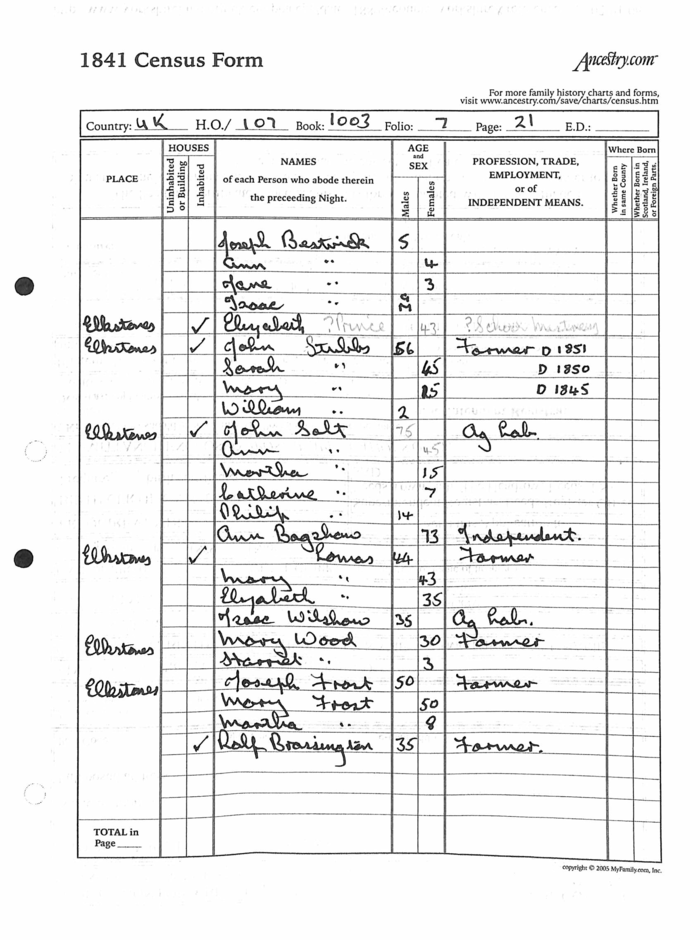 1841 Census Form
Ancestry.com
For more family history charts and forms,
visit www.ancestry.com/save/charts/census.htm
Country: UK H.O./ 107 Book: 1003 Folio: 7 Page: 21 E.D.:
PLACE
HOUSES
Uninhabited or Building
Inhabited
NAMES
of each Person who abode therein
the preceeding Night.
AGE
and
SEX
Males
Females
PROFESSION, TRADE,
EMPLOYMENT,
or of
INDEPENDENT MEANS.
Where Born
Whether Born in same County
Whether Born in Scotland, Ireland, or Foreign Parts.
Joseph Bestwick 5
Ann " 4
Jane " 3
Isaac "
Elkstones ✓ Elizabeth ?Prince 43 ?School Mistress
Elkstones ✓ John Stubbs 56 Farmer D 1851
Sarah " 45 D 1850
Mary " 15 D 1845
William " 2
Elkstones ✓ John Salt 75 Ag Lab.
Ann " 45
Martha " 15
Catherine " 7
Philip " 14
Ann Bagshaw 73 Independent.
Elkstones ✓ Lomas 44 Farmer
Mary " 43
Elizabeth " 35
Isaac Wilshaw 35 Ag Lab.
Elkstones Mary Wood 30 Farmer
Harriet " 3
Elkstones Joseph Frost 50 Farmer
Mary Frost 50
Martha " 8
✓ Ralf Brassington 35 Farmer.
TOTAL in
Page
copyright © 2005 MyFamily.com, Inc.